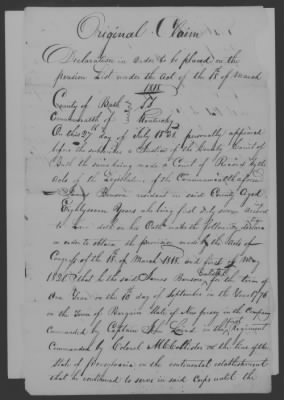 Original Claim
Declaration in order to be placed on the
pension List under the Act of the 18th of March
1818
County of Bath
Commonwealth of Kentucky } SS
On this 27th day of July 1820 personally appeared
before the subscriber a Justice of the County Court of
Bath the same being made a Court of Record by the
Acts of the Legislature of the Commonwealth aforesaid
James Benson resident in said County Aged
Eighty seven Years who being first duly sworn according
to Law doth on his Oath make the following declaration
in order to obtain the provision made by the Acts of
Congress of the 18th of March 1818 and first of May
1820 that he the said James Benson Enlisted for the term of
One Year on the 15 day of September in the Year 1776
in the Town of State of New Jersey in the Company
Commanded by Captain John in the Regiment
Commanded by Colonel McCollister in the line of the
State of Pennsylvania on the continental establishment
that he continued to serve in said Corps until the